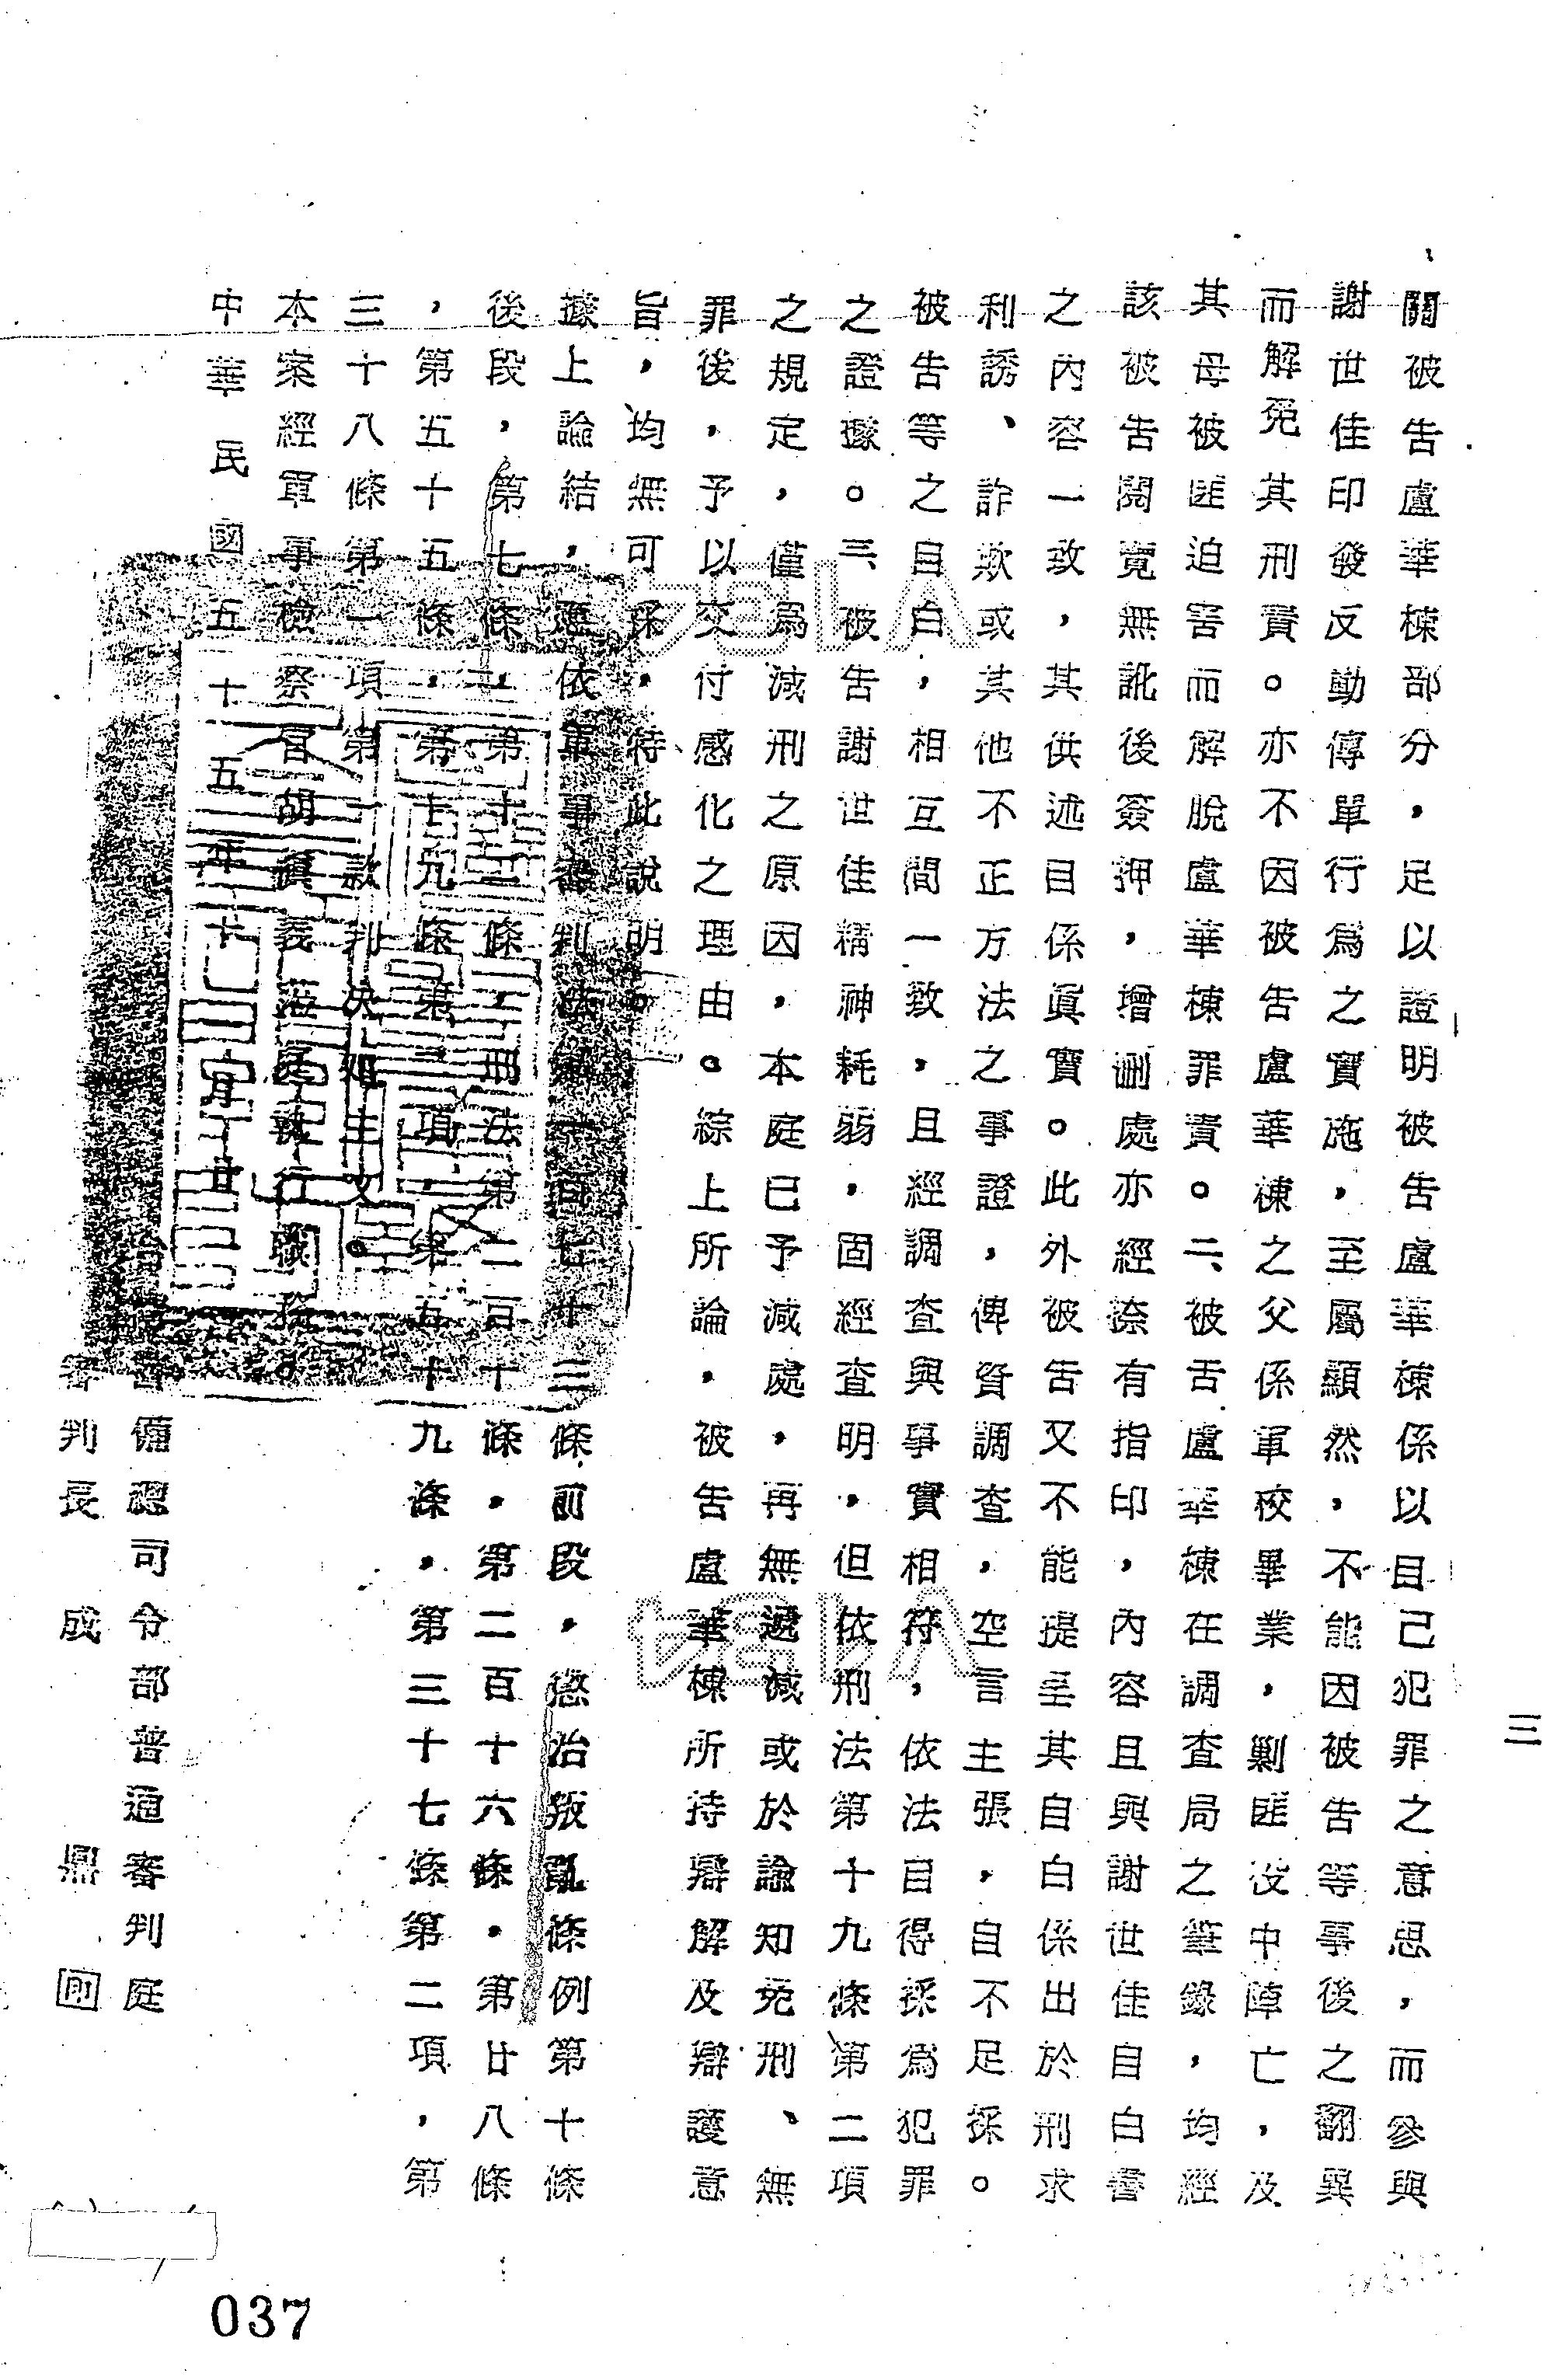 三
關被告盧華棟部分，足以證明被告盧華棟係以自己犯罪之意思，而參與
謝世佳印發反動傳單行為之實施，至屬顯然，不能因被告等事後之翻異
而解免其刑責。亦不因被告盧華棟之父係軍校畢業，剿匪役中陣亡，及
其母被匪迫害而解脫盧華棟罪責。二、被告盧華棟在調查局之筆錄，均經
該被告閱覽無訛後簽押，增刪處亦經捺有指印，內容且與謝世佳自白書
之內容一致，其供述自係真實。此外被告又不能提出其自白係出於刑求
利誘、詐欺或其他不正方法之事證，俾資調查，空言主張，自不足採。
被告等之自白，相互間一致，且經調查與事實相符，依法自得採為犯罪
之證據。三、被告謝世佳精神耗弱，固經查明，但依刑法第十九條第二項
之規定，僅為減刑之原因，本庭已予減處，再無遞減或於諭知免刑、無
罪後，予以交付感化之理由。綜上所論，被告盧華棟所持辯解及辯護意
旨，均無可採，特此說明。
據上論結，應依軍事審判法第一百七十三條前段，懲治叛亂條例第十條
後段，第七條，第十二條，刑法第二百十條，第二百十六條，第廿八條
，第五十五條，第十九條第二項，第五十九條，第三十七條第二項，第
三十八條第一項第一款判決如主文。
本案經軍事檢察官胡真義蒞庭執行職務。
中華民國五十五年十二月廿
備總司令部普通審判庭
審判長 成 鼎 印
037